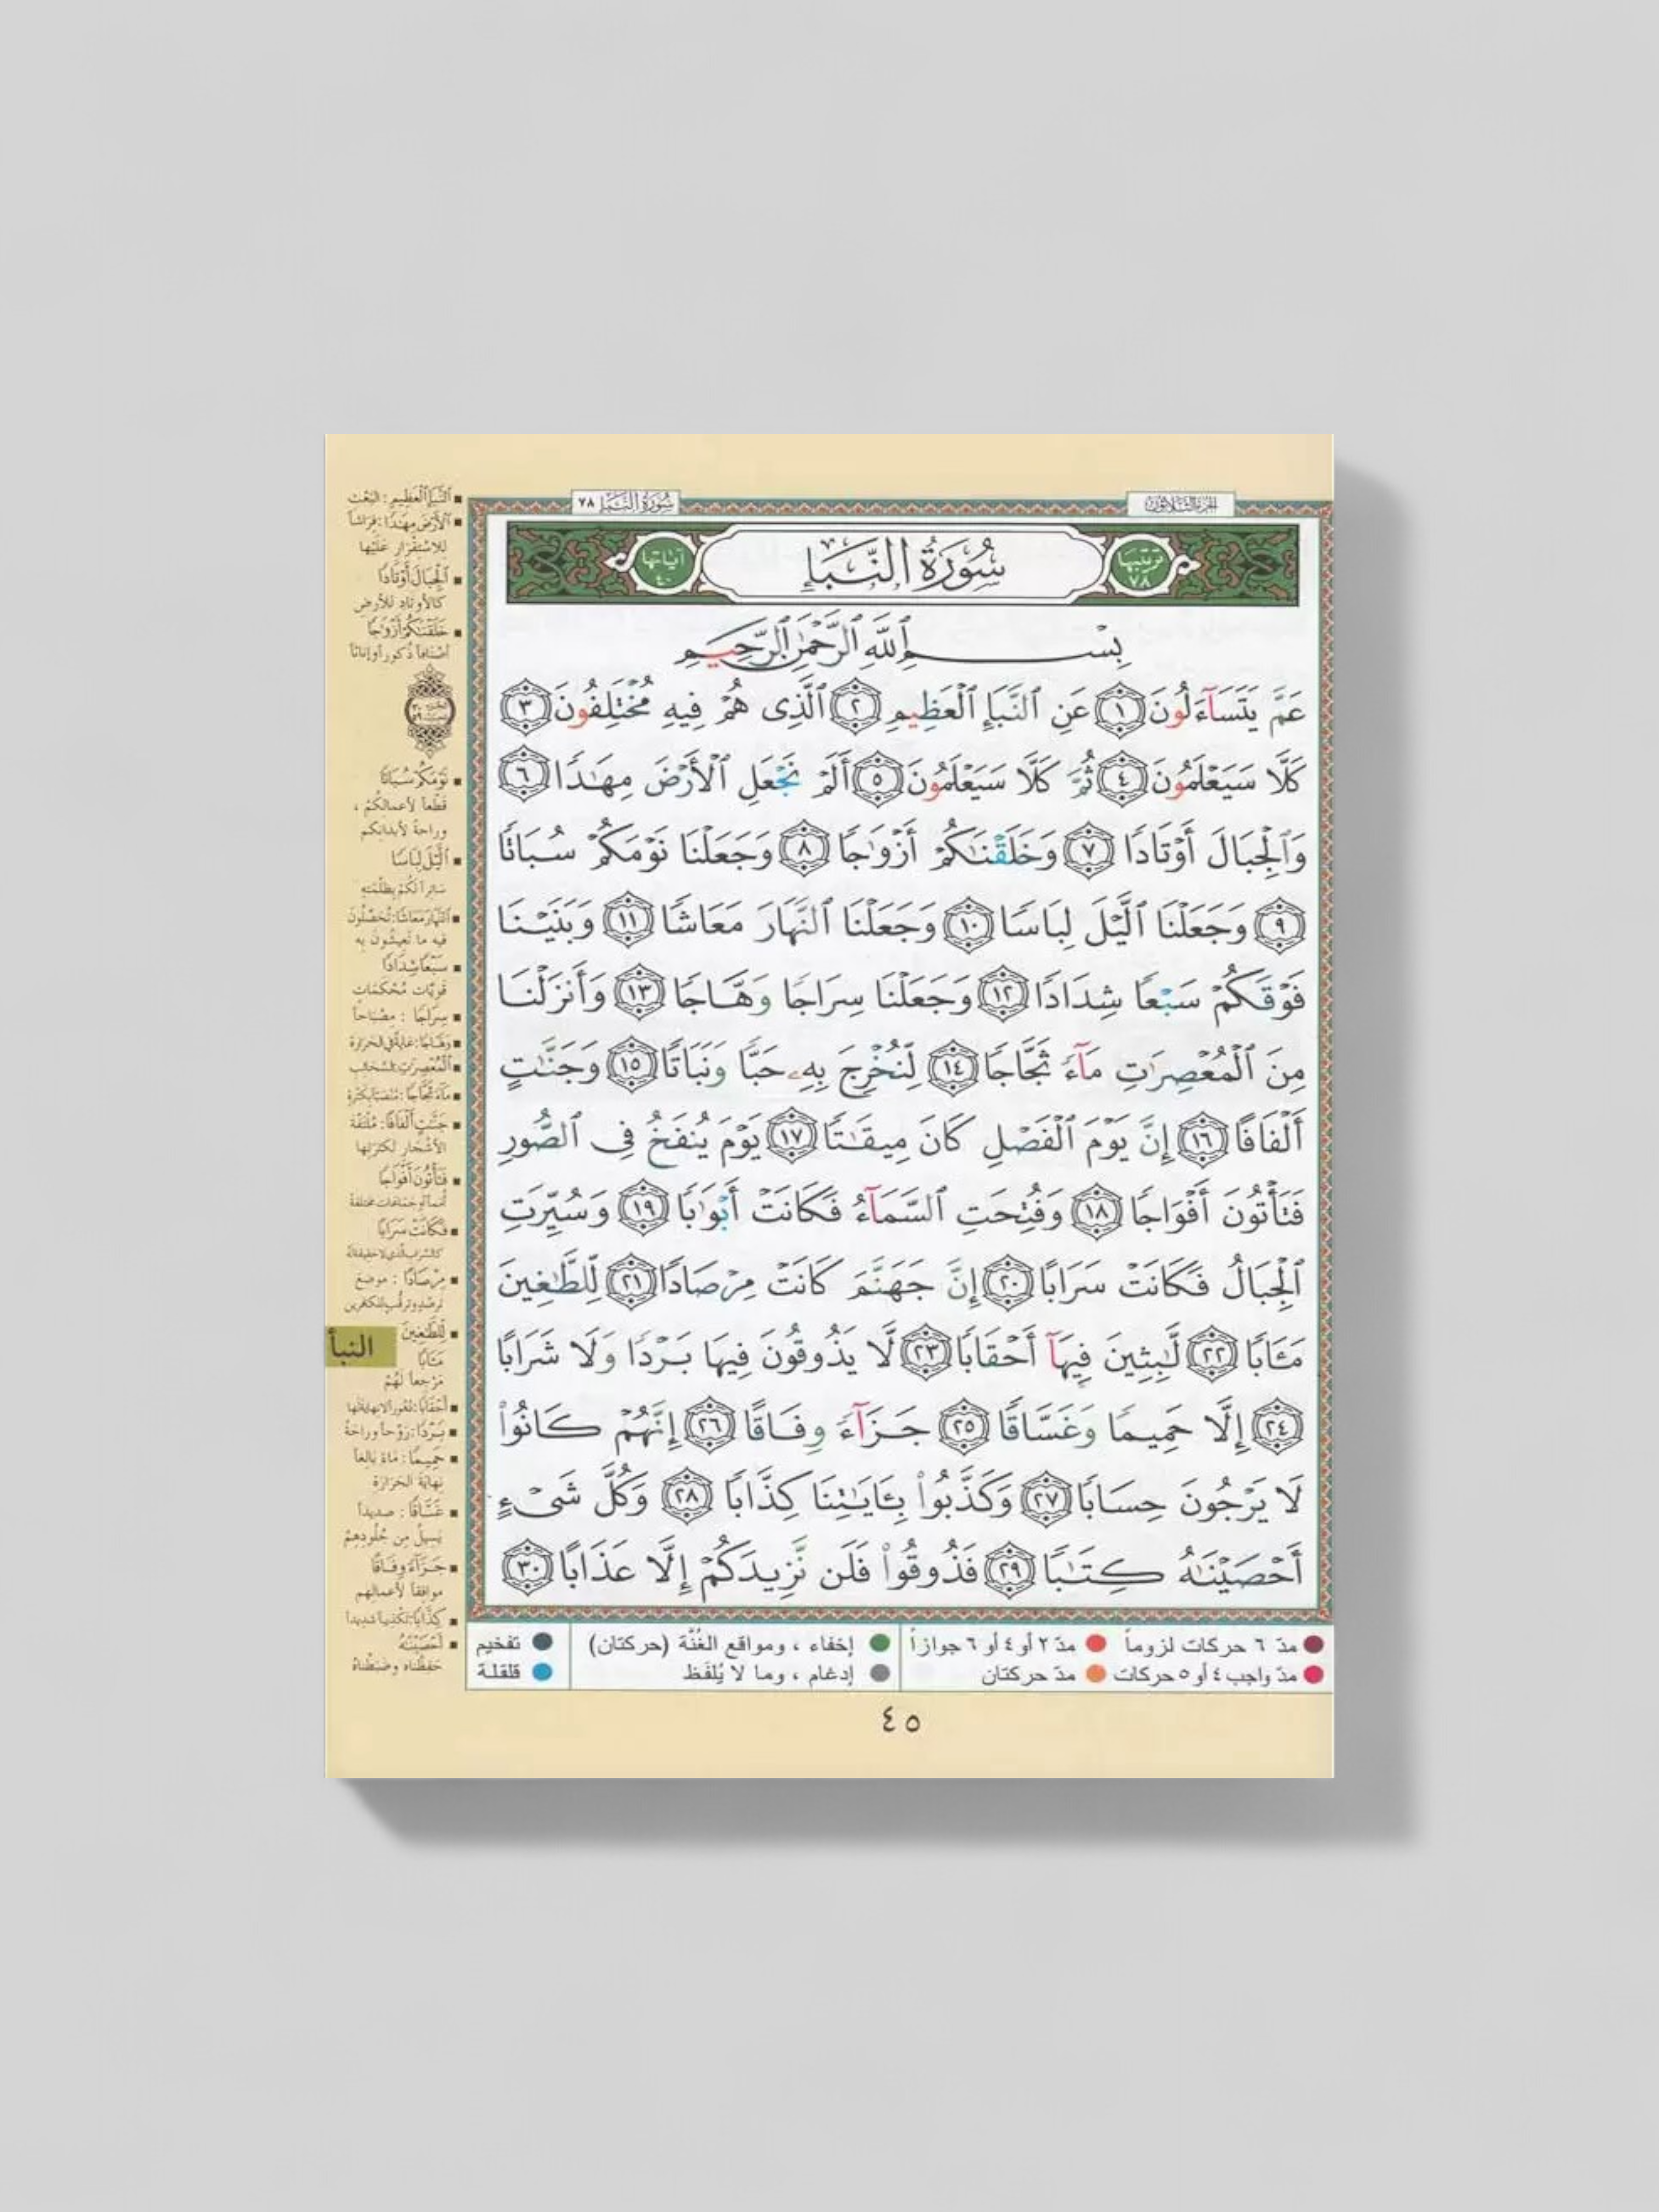 الجزء الثلاثون
سُورَةُ النَّبَإِ ٧٨
ترتيبها ٧٨
سُورَةُ النَّبَإِ
آياتها ٤٠
بِسْمِ ٱللَّهِ ٱلرَّحْمَٰنِ ٱلرَّحِيمِ
عَمَّ يَتَسَآءَلُونَ ١ عَنِ ٱلنَّبَإِ ٱلْعَظِيمِ ٢ ٱلَّذِى هُمْ فِيهِ مُخْتَلِفُونَ ٣
كَلَّا سَيَعْلَمُونَ ٤ ثُمَّ كَلَّا سَيَعْلَمُونَ ٥ أَلَمْ نَجْعَلِ ٱلْأَرْضَ مِهَٰدًا ٦
وَٱلْجِبَالَ أَوْتَادًا ٧ وَخَلَقْنَٰكُمْ أَزْوَٰجًا ٨ وَجَعَلْنَا نَوْمَكُمْ سُبَاتًا
٩ وَجَعَلْنَا ٱلَّيْلَ لِبَاسًا ١٠ وَجَعَلْنَا ٱلنَّهَارَ مَعَاشًا ١١ وَبَنَيْنَا
فَوْقَكُمْ سَبْعًا شِدَادًا ١٢ وَجَعَلْنَا سِرَاجًا وَهَّاجًا ١٣ وَأَنزَلْنَا
مِنَ ٱلْمُعْصِرَٰتِ مَآءً ثَجَّاجًا ١٤ لِّنُخْرِجَ بِهِۦ حَبًّا وَنَبَاتًا ١٥ وَجَنَّٰتٍ
أَلْفَافًا ١٦ إِنَّ يَوْمَ ٱلْفَصْلِ كَانَ مِيقَٰتًا ١٧ يَوْمَ يُنفَخُ فِى ٱلصُّورِ
فَتَأْتُونَ أَفْوَاجًا ١٨ وَفُتِحَتِ ٱلسَّمَآءُ فَكَانَتْ أَبْوَٰبًا ١٩ وَسُيِّرَتِ
ٱلْجِبَالُ فَكَانَتْ سَرَابًا ٢٠ إِنَّ جَهَنَّمَ كَانَتْ مِرْصَادًا ٢١ لِّلطَّٰغِينَ
مَـَٔابًا ٢٢ لَّٰبِثِينَ فِيهَآ أَحْقَابًا ٢٣ لَّا يَذُوقُونَ فِيهَا بَرْدًا وَلَا شَرَابًا
٢٤ إِلَّا حَمِيمًا وَغَسَّاقًا ٢٥ جَزَآءً وِفَاقًا ٢٦ إِنَّهُمْ كَانُوا۟
لَا يَرْجُونَ حِسَابًا ٢٧ وَكَذَّبُوا۟ بِـَٔايَٰتِنَا كِذَّابًا ٢٨ وَكُلَّ شَىْءٍ
أَحْصَيْنَٰهُ كِتَٰبًا ٢٩ فَذُوقُوا۟ فَلَن نَّزِيدَكُمْ إِلَّا عَذَابًا ٣٠
ٱلنَّبَإِ ٱلْعَظِيمِ : البَعْث
ٱلْأَرْضَ مِهَٰدًا : فِرَاشاً
للاسْتِقْرَارِ عَلَيْها
ٱلْجِبَالَ أَوْتَادًا
كالأوتادِ للأرضِ
خَلَقْنَٰكُمْ أَزْوَٰجًا
أصْنَافاً ذُكور أو إناثاً
نَوْمَكُمْ سُبَاتًا
قَطْعاً لأعمالِكُمْ ،
وراحةً لأبدانِكم
ٱلَّيْلَ لِبَاسًا
سَاتِراً لَكُمْ بِظُلْمَتِهِ
ٱلنَّهَارَ مَعَاشًا : تُحَصِّلُونَ
فيه ما تَعِيشُونَ بِهِ
سَبْعًا شِدَادًا
قَوِيّات مُحْكَمَات
سِرَاجًا : مِصْبَاحاً
وَهَّاجًا : غَايَةً في الحَرَارَة
ٱلْمُعْصِرَٰتِ : السَّحَائِب
مَآءً ثَجَّاجًا : مُنْصَبّاً بِكَثْرة
جَنَّٰتٍ أَلْفَافًا : مُلْتَفَّة
الأشْجَار لِكَثْرَتِها
فَتَأْتُونَ أَفْوَاجًا
أُمَماً أو جَمَاعات مختلفة
فَكَانَتْ سَرَابًا
كالسَّرَابِ الَّذِي لا حَقِيقةَ لَهُ
مِرْصَادًا : موضِعَ
تَرصُّدٍ وترقُّبٍ للكافرين
لِّلطَّٰغِينَ
مَـَٔابًا
مَرْجِعاً لَهُمْ
أَحْقَابًا : دُهُوراً لا نِهايةَ لَها
بَرْدًا : رَوْحاً وراحةً
حَمِيمًا : مَاءً بَالِغاً
نِهايَةَ الحَرَارَة
غَسَّاقًا : صديداً
يَسيلُ مِن جُلُودِهِمْ
جَزَآءً وِفَاقًا
موافِقاً لأعمالهم
كِذَّابًا : تكْذيباً شديداً
أَحْصَيْنَٰهُ
حَفِظْناه وضَبَطْناهُ
النبأ
مدّ ٦ حركات لزوماً
مدّ ٢ أو ٤ أو ٦ جوازاً
إخفاء ، ومواقع الغُنَّة (حركتان)
تفخيم
مدّ واجب ٤ أو ٥ حركات
مدّ حركتان
إدغام ، وما لا يُلفَظ
قلقلة
٤٥